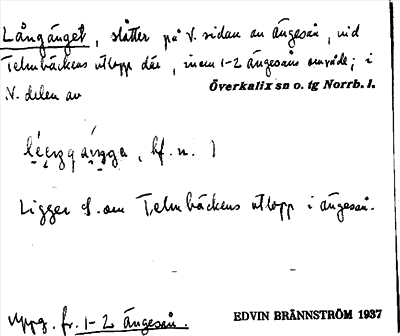 Långänget, slåtter på V. sidan av Ängesån, vid
Telmbäckens utlopp där, inom 1-2 Ängesåns område; i
N. delen av Överkalix sn o. tg Norrb. l.
hf. n. )
Ligger S. om Telmbäckens utlopp i Ängesån.
Uppg. fr. 1-2 Ängesån.
EDVIN BRÄNNSTRÖM 1937